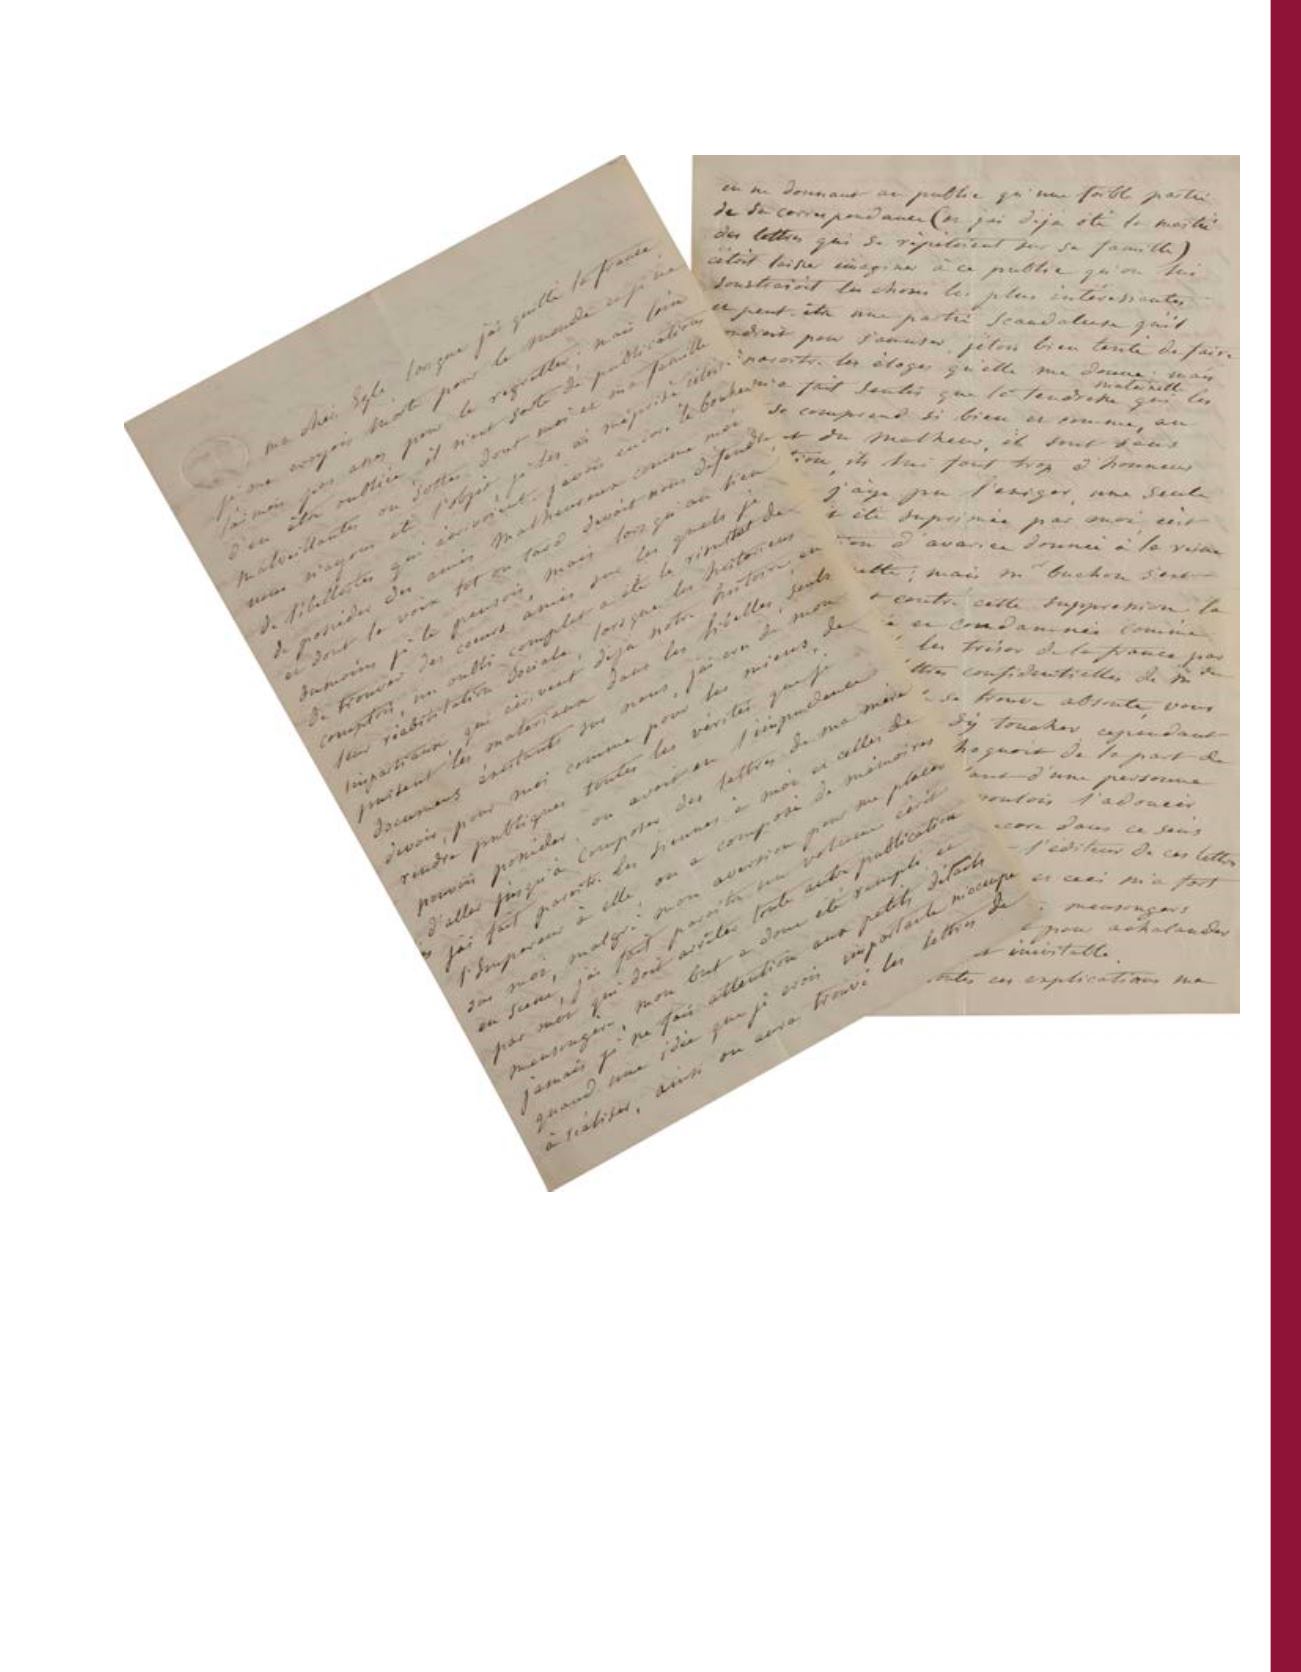 ma chère Eglé lorsque j'ai quitté la france
je me croyois morte pour le monde et je ne
l'ai mois pas assez pour le regretter; mais loin
d'en être oubliée il n'est sorte de publications
malveillantes ou sottes dont moi et ma famille
nous n'ayons été l'objet je les ai méprisé
de libellistes qui écrivoient j'avois encore le bonheur
de posséder des amis malheureux comme moi
et dont la voix tot ou tard devoit nous défendre
dumoins je le pensois, mais lorsqu'au lieu
de trouver des cœurs amis sur les quels je
comptois, un oubli complet a été le résultat de
leur réhabilitation sociale, lorsque les historiens
impartiaux qui écrivent déjà notre histoire, en
puisent les materiaux dans les libelles, seuls
documens existants sur nous, j'ai cru de mon
devoir, pour moi comme pour les miens, de
rendre publiques toutes les vérités que je
pouvois posséder on avoit eu l'impudence
d'aller jusqu'à composer des lettres de ma mère
j'ai fait paroitre les siennes à moi et celles de
l'Empereur à elle on a composé de mémoires
sur moi, malgré mon aversion pour me placer
en scene, j'ai fait paroitre un volume écrit
par moi qui doit arrêter toute autre publication
mensongère, mon but a donc été rempli et
jamais je ne fais attention aux petits détails
quand une idée que je crois importante m'occupe
à réaliser, ainsi on aura trouvé les lettres de
en ne donnant au public qu'une foible partie
de sa correspondance (et j'ai déja oté la moitié
des lettres qui se répétoient sur sa famille)
c'étoit laisser imaginer à ce public qu'on lui
soustraioit les choses les plus intéressantes
et peut-être une partie scandaleuse qu'il
voudroit pour s'amuser, jétois bien tentée de faire
paroitre les éloges qu'elle me donne; mais
m'a fait sentir que la tendresse maternelle qui les
se comprend si bien et comme, au
du malheur, il sont sans
ils lui font trop d'honneur
j'aye pu l'exiger, une seule
été suprimée par moi c'est
d'avarice donnée à la reine
mais mr buchon s'est
contre cette suppression la
et condamnée comme
les trésor de la france par
lettres confidentielles de me de
se trouve absente, vous
toucher, cependant
de la part de
d'une personne
voulois l'adoucir
encore dans ce sens
l'editeur de ces lettres
et ceci m'a fort
mensongers
pour achalander
inévitable.
toutes ces explications ma